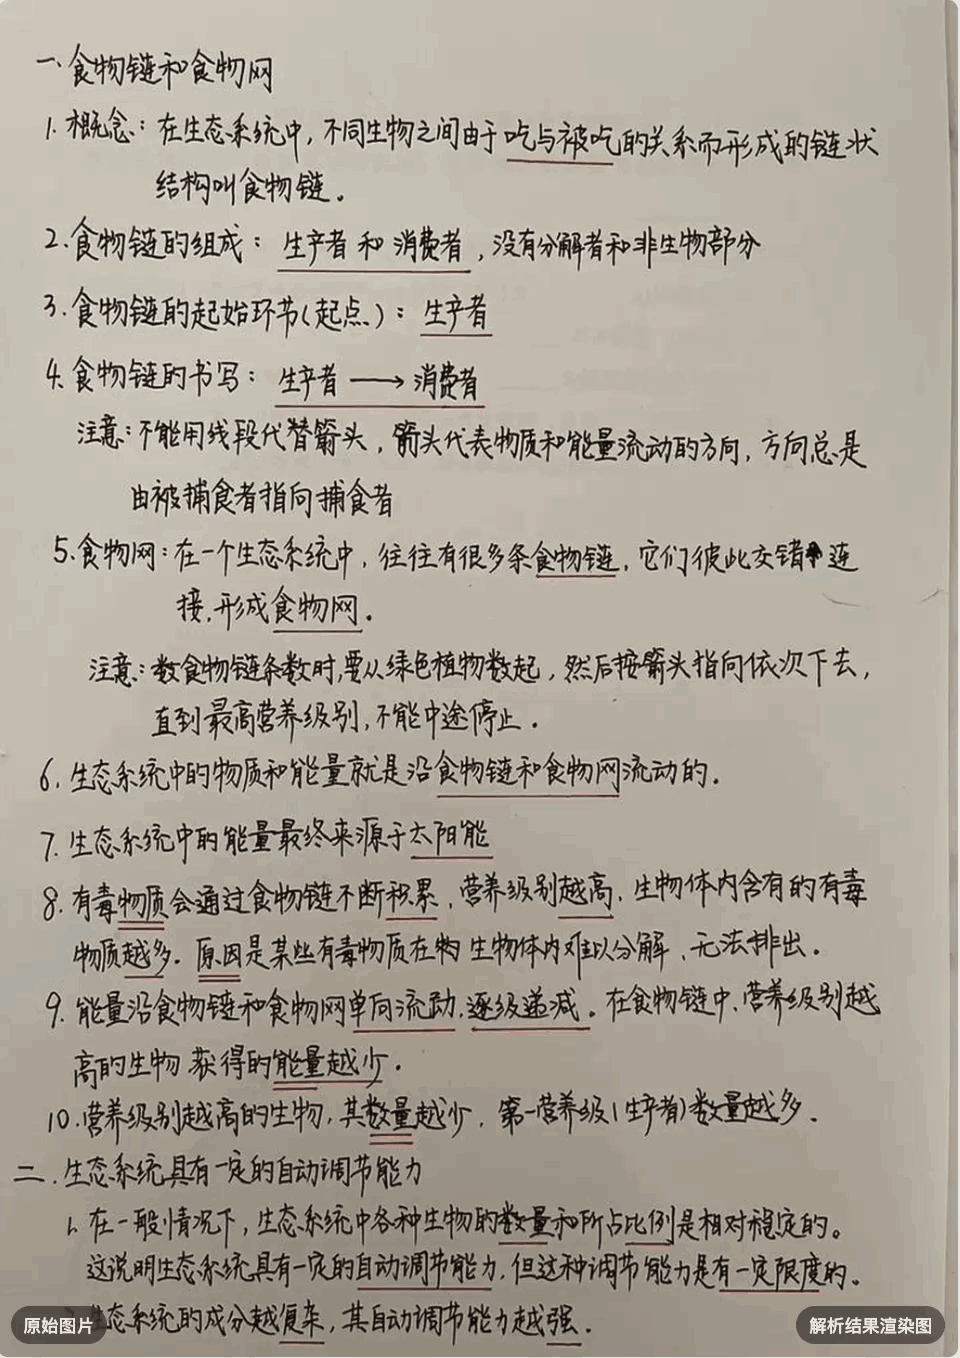 一、食物链和食物网
1. 概念：在生态系统中，不同生物之间由于吃与被吃的关系而形成的链状
结构叫食物链。
2. 食物链的组成：生产者和消费者，没有分解者和非生物部分
3. 食物链的起始环节(起点)：生产者
4. 食物链的书写：生产者 → 消费者
注意：不能用线段代替箭头，箭头代表物质和能量流动的方向，方向总是
由被捕食者指向捕食者
5. 食物网：在一个生态系统中，往往有很多条食物链，它们彼此交错连
接，形成食物网。
注意：数食物链条数时，要从绿色植物数起，然后按箭头指向依次下去，
直到最高营养级别，不能中途停止。
6. 生态系统中的物质和能量就是沿食物链和食物网流动的。
7. 生态系统中的能量最终来源于太阳能
8. 有毒物质会通过食物链不断积累，营养级别越高，生物体内含有的有毒
物质越多。原因是某些有毒物质在生物体内难以分解、无法排出。
9. 能量沿食物链和食物网单向流动、逐级递减。在食物链中、营养级别越
高的生物获得的能量越少。
10. 营养级别越高的生物，其数量越少，第一营养级(生产者)数量越多。
二、生态系统具有一定的自动调节能力
1. 在一般情况下，生态系统中各种生物的数量和所占比例是相对稳定的。
这说明生态系统具有一定的自动调节能力，但这种调节能力是有一定限度的。
生态系统的成分越复杂，其自动调节能力越强。
原始图片
解析结果渲染图